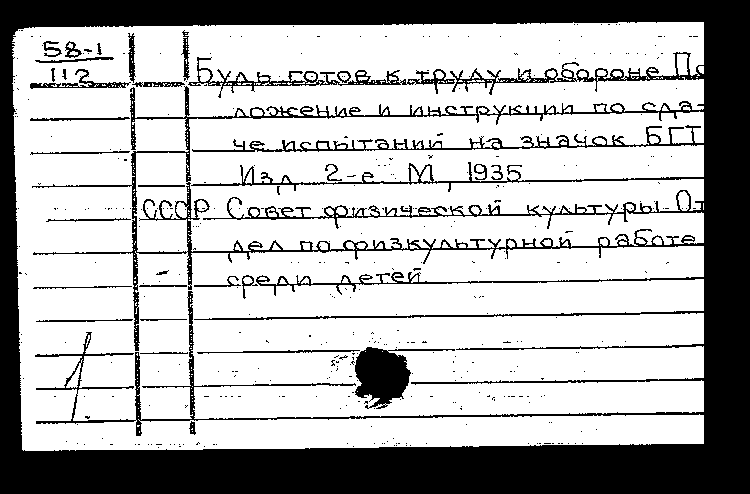 58-1
112
Будь готов к труду и обороне По
ложение и инструкции по сда-
че испытаний на значок БГТ
Изд 2-е М, 1935
СССР Совет физической культуры. От
дел по физкультурной работе
среди детей
1